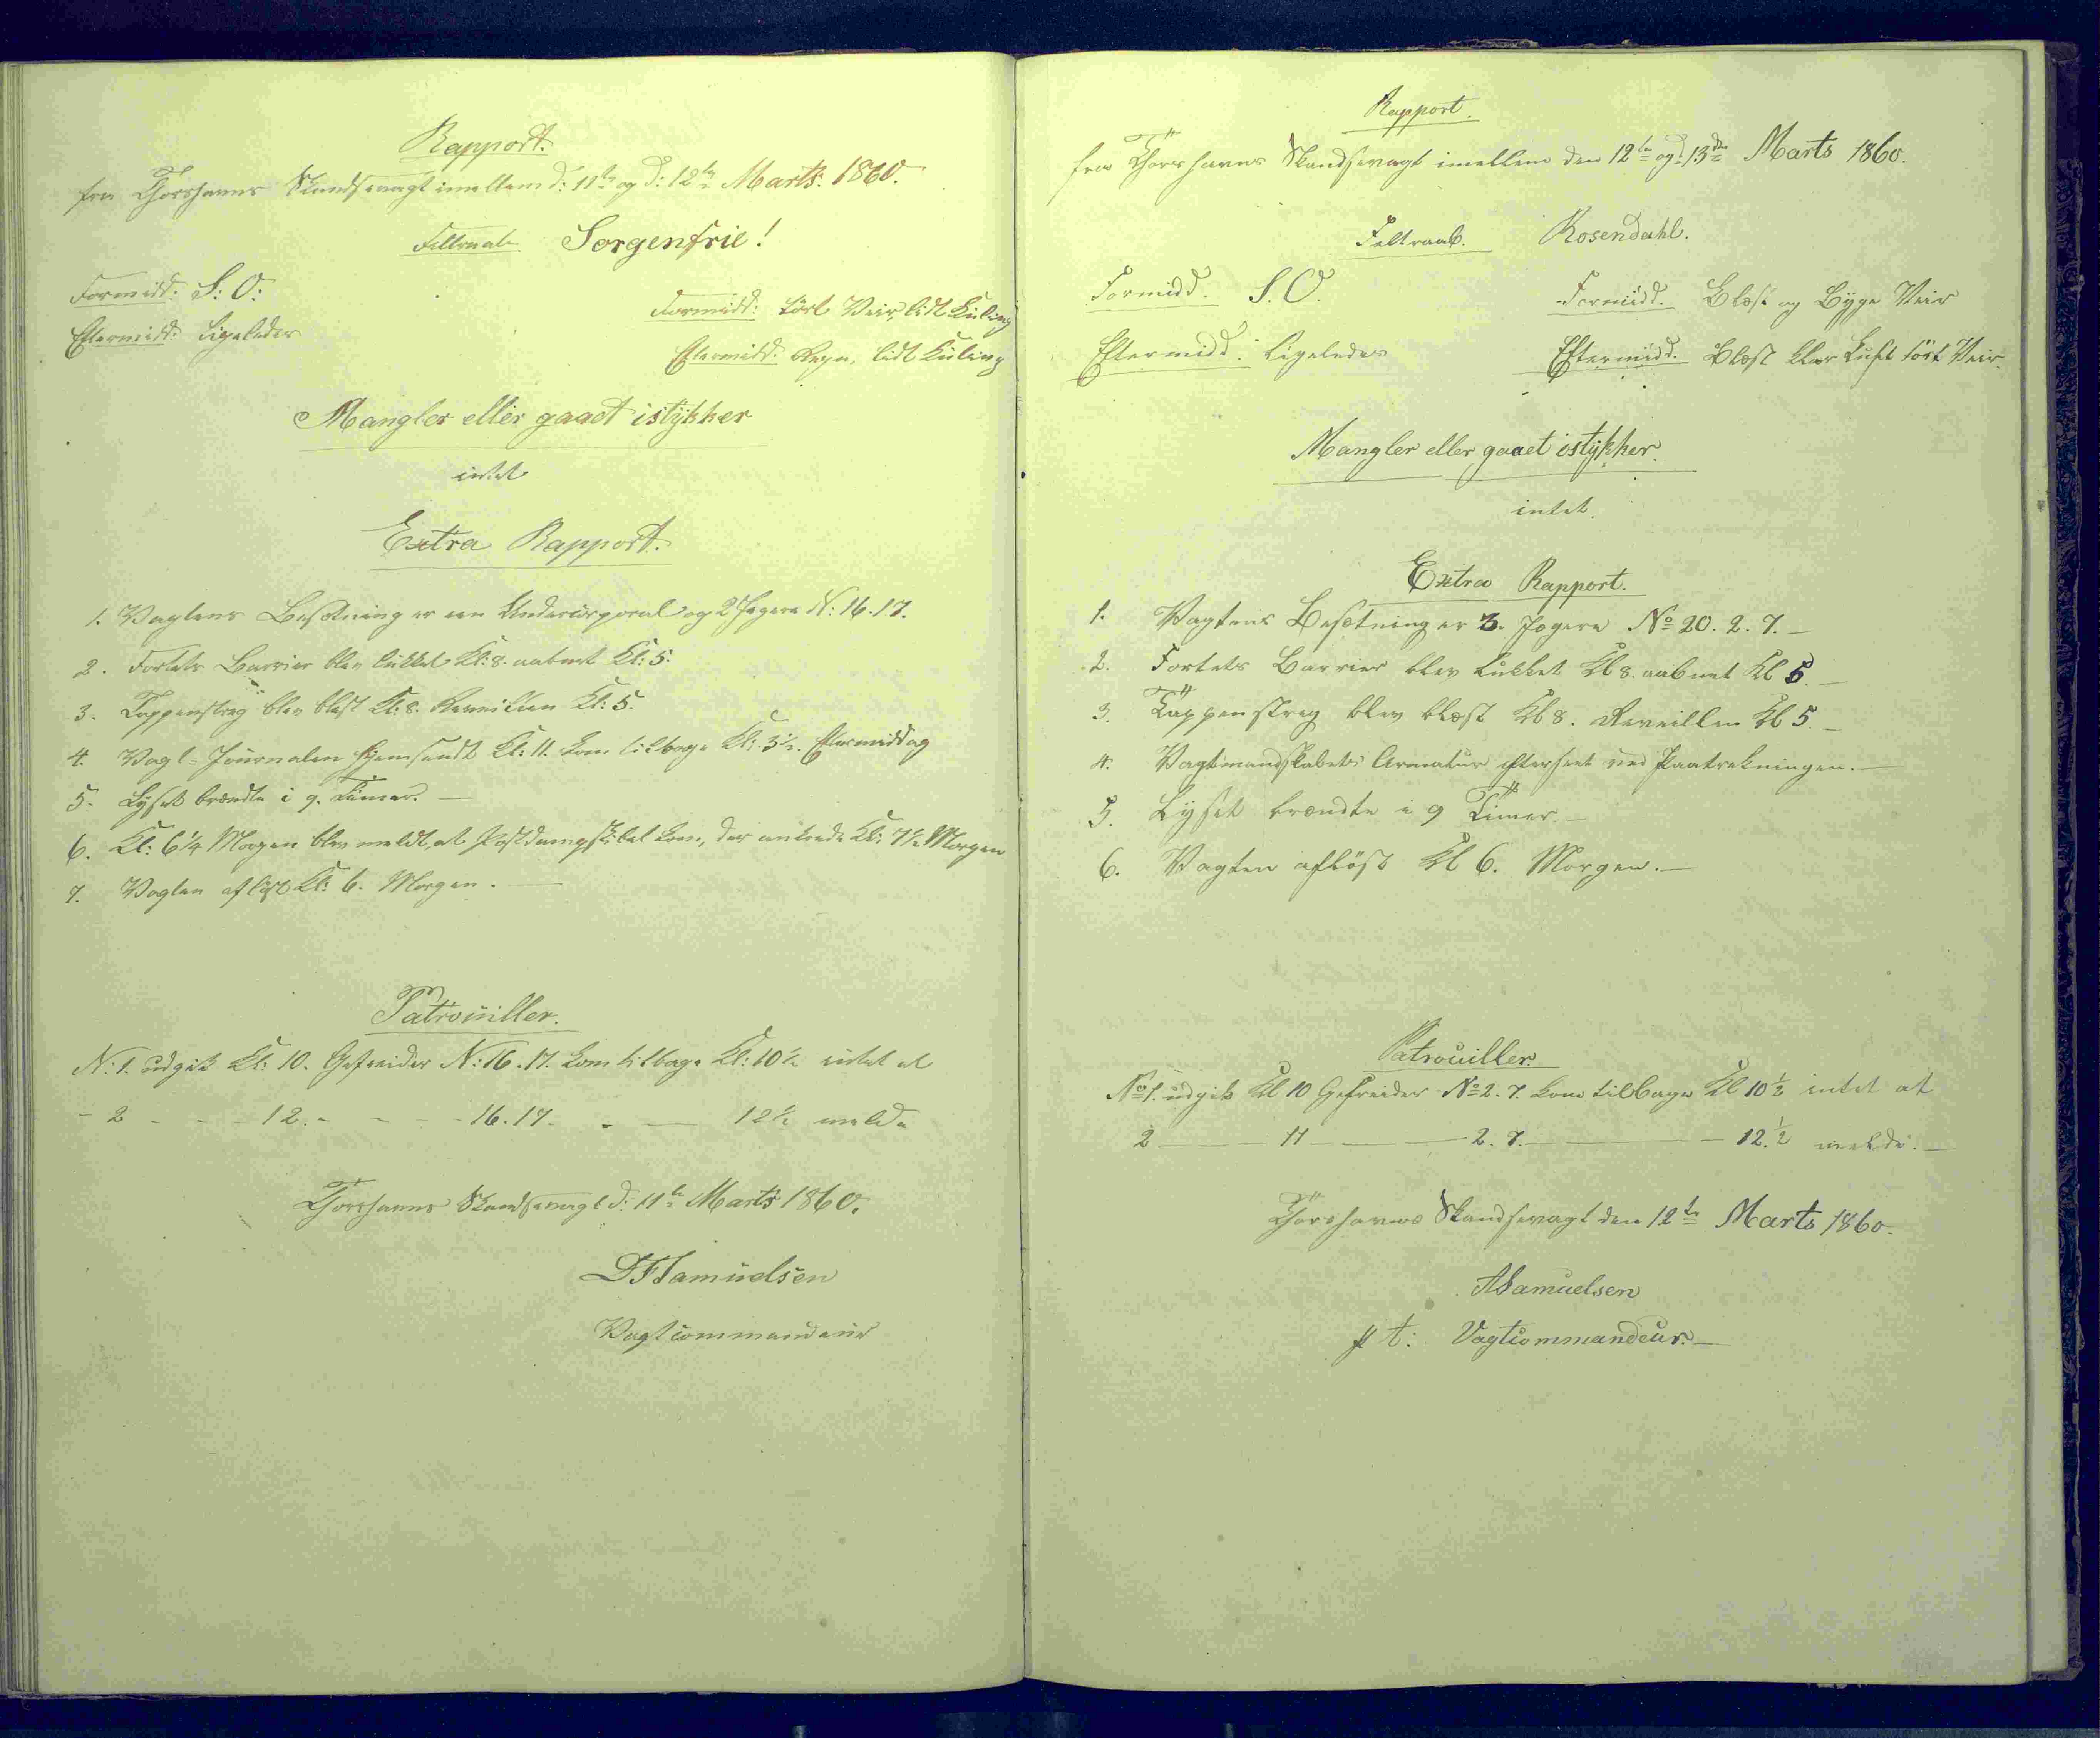 Rapport.
fra Thorshavns Skandsevagt imellem d: 11te og d: 12te Marts. 1860.
Feltraab Sorgenfrie!
Formidd: S: O:
Formidd: tört Veir, lidt Kuling
Eftermidd: ligeledes
Eftermidd: Regn, lidt Kuling
Mangler eller gaaet istykker
intet
Extra Rapport.
1. Vagtens Besætning er een Undercorporal og 2 Jægere N: 16. 17.
2. Fortets Barrier blev lukket Kl: 8. aabnet Kl: 5.
3. Tappenstreg blev blæst Kl: 8. Reveillen Kl: 5.
4. Vagt-Journalen hjemsendt Kl: 11. kom tilbage Kl: 3½. Eftermiddag
5. Lyset brændte i 9. Timer. —
6. Kl: 6¼ Morgen blev meldt, at Postdampskibet kom, der ankrede Kl: 7½ Morgen
7. Vagten aflöst Kl: 6. Morgen. —
Patrouiller.
N: 1. udgik Kl: 10. Gefreider N: 16. 17. kom tilbage Kl: 10½ intet at
- 2 - - - 12. - - - - 16. 17. - - — 12½ melde
Thorshavns Skandsevagt d: 11te Marts 1860.
DFSamuelsen
Vagtcommandeur
Rapport.
fra Thorshavns Skandsevagt imellem den 12te og d. 13de Marts 1860.
Feltraab. Rosendahl.
Formidd. S. O.
Formidd. Blæst og Byge Veir
Eftermidd: ligeledes
Eftermidd. Blæst klar Luft tört Veir.
Mangler eller gaaet istykker.
intet.
Extra Rapport.
1. Vagtens Besætning er 3. Jægere No 20. 2. 7. —
2. Fortets Barrier blev lukket Kl 8. aabnet Kl 5. —
3. Tappenstreg blev blæst Kl 8. Reveillen Kl 5. —
4. Vagtmandskabets Armatur efterseet ved Paatrækningen. —
5. Lyset brændte i 9 Timer —
6. Vagten aflöst Kl 6. Morgen. —
Patrouiller.
No 1. udgik Kl 10 Gefreider No 2. 7. kom tilbage Kl 10½ intet at
2 — — 11 — — 2. 7. — — 12.½ melde. —
Thorshavns Skandsevagt den 12te Marts 1860.
ASamuelsen
p t: Vagtcommandeur. —